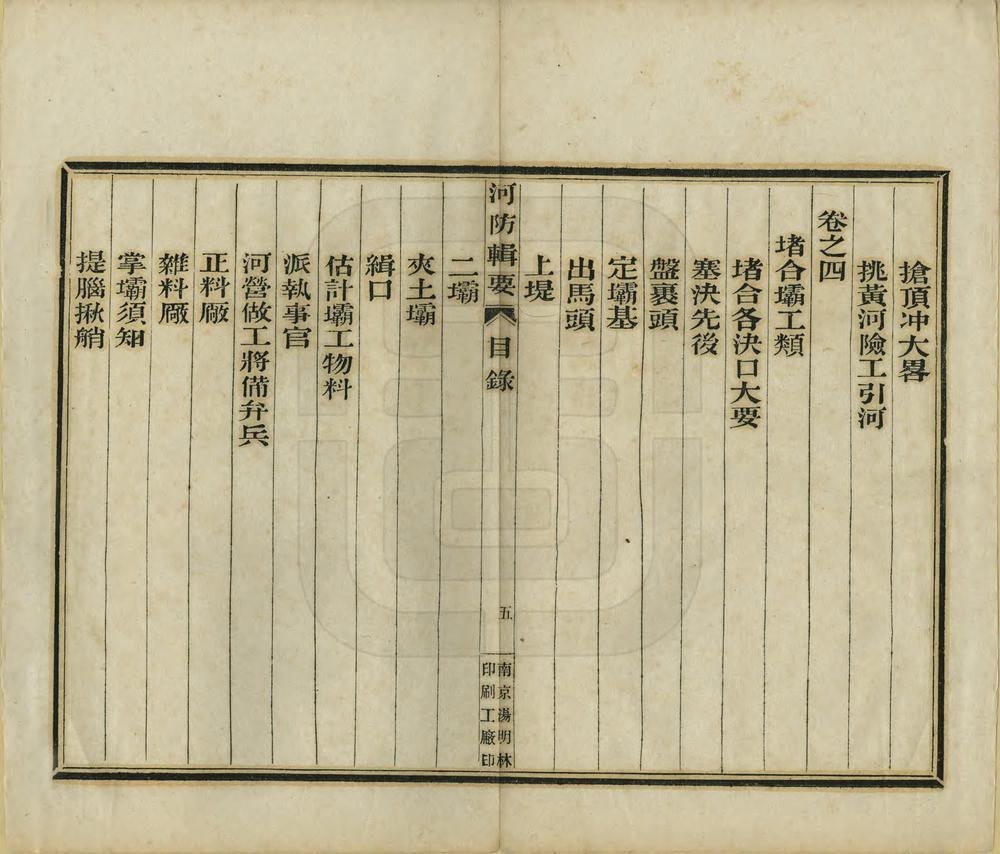 搶頂冲大畧
挑黃河險工引河
卷之四
堵合壩工類
堵合各決口大要
塞決先後
盤裹頭
定壩基
出馬頭
上堤
河防輯要 目錄
五
南京湯明林
印刷工廠印
二壩
夾土壩
緝口
估計壩工物料
派執事官
河營做工將備弁兵
正料厰
雜料厰
掌壩須知
提腦揪艄